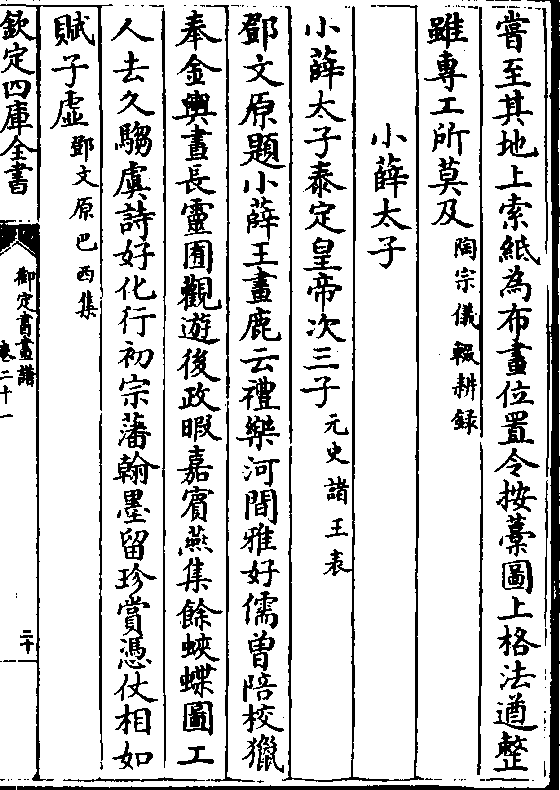 嘗至其地上索紙為布畫位置令按藁圖上格法遒整
雖專工所莫及陶宗儀輟耕録
小薛太子
小薛太子泰定皇帝次三子元史諸王表
鄧文原題小薛王畫鹿云禮樂河間雅好儒曽陪校獵
奉金輿畫長靈囿觀遊後政暇嘉賓燕集餘蛺蝶圖工
人去久騶虞詩好化行初宗藩翰墨留珍賞憑仗相如
賦子虛鄧文原巴西集
欽定四庫全書
御定書畫譜
卷二十一
二十